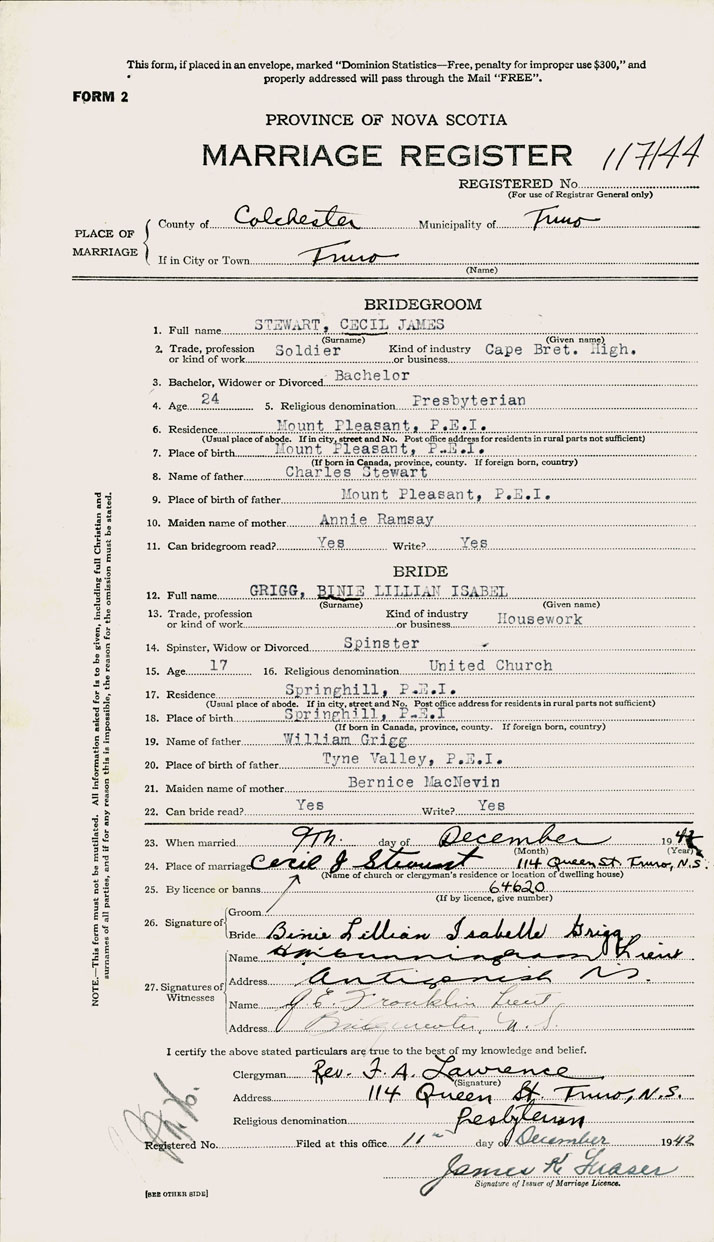 This form, if placed in an envelope, marked "Dominion Statistics—Free, penalty for improper use $300," and
properly addressed will pass through the Mail "FREE".
FORM 2
PROVINCE OF NOVA SCOTIA
MARRIAGE REGISTER 117144
REGISTERED No.
(For use of Registrar General only)
PLACE OF MARRIAGE
County of Colchester Municipality of Truro
If in City or Town Truro
(Name)
BRIDEGROOM
1. Full name STEWART, CECIL JAMES
(Surname) (Given name)
2. Trade, profession or kind of work Soldier Kind of industry or business Cape Bret. High.
3. Bachelor, Widower or Divorced Bachelor
4. Age 24 5. Religious denomination Presbyterian
6. Residence Mount Pleasant, P.E.I.
(Usual place of abode. If in city, street and No. Post office address for residents in rural parts not sufficient)
7. Place of birth Mount Pleasant, P.E.I.
(If born in Canada, province, county. If foreign born, country)
8. Name of father Charles Stewart
9. Place of birth of father Mount Pleasant, P.E.I.
10. Maiden name of mother Annie Ramsay
11. Can bridegroom read? Yes Write? Yes
BRIDE
12. Full name GRIGG, BINIE LILLIAN ISABEL
(Surname) (Given name)
13. Trade, profession or kind of work Kind of industry or business Housework
14. Spinster, Widow or Divorced Spinster
15. Age 17 16. Religious denomination United Church
17. Residence Springhill, P.E.I.
(Usual place of abode. If in city, street and No. Post office address for residents in rural parts not sufficient)
18. Place of birth Springhill, P.E.I
(If born in Canada, province, county. If foreign born, country)
19. Name of father William Grigg
20. Place of birth of father Tyne Valley, P.E.I.
21. Maiden name of mother Bernice MacNevin
22. Can bride read? Yes Write? Yes
23. When married 9th. day of December 1942
(Month) (Year)
24. Place of marriage Cecil J Stewart 114 Queen St. Truro, N.S.
(Name of church or clergyman's residence or location of dwelling house)
25. By licence or banns 64620
(If by licence, give number)
26. Signature of
Groom
Bride Binie Lillian Isabelle Grigg
27. Signatures of Witnesses
Name Cunningham Lieut
Address Antigonish N.S.
Name J. E. Franklin Lieut.
Address Bridgewater, N.S.
I certify the above stated particulars are true to the best of my knowledge and belief.
Clergyman Rev. F. A. Lawrence
(Signature)
Address 114 Queen St. Truro, N.S.
Religious denomination Presbyterian
Registered No. Filed at this office 11th day of December 1942
James K Fraser
Signature of Issuer of Marriage Licence.
[SEE OTHER SIDE]
NOTE.—This form must not be mutilated. All information asked for is to be given, including full Christian and
surnames of all parties, and if for any reason this is impossible, the reason for the omission must be stated.